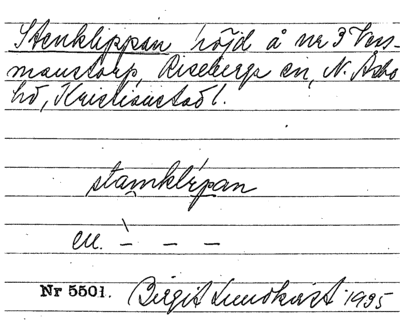 Stenklippan höjd å nr 3 Vers-
manstorp, Riseberga sn, N. Åsbo
hd, Kristianstad l.
stamklépan
en. \ – – –
Nr 5501. Birgit Lundkvist 1935